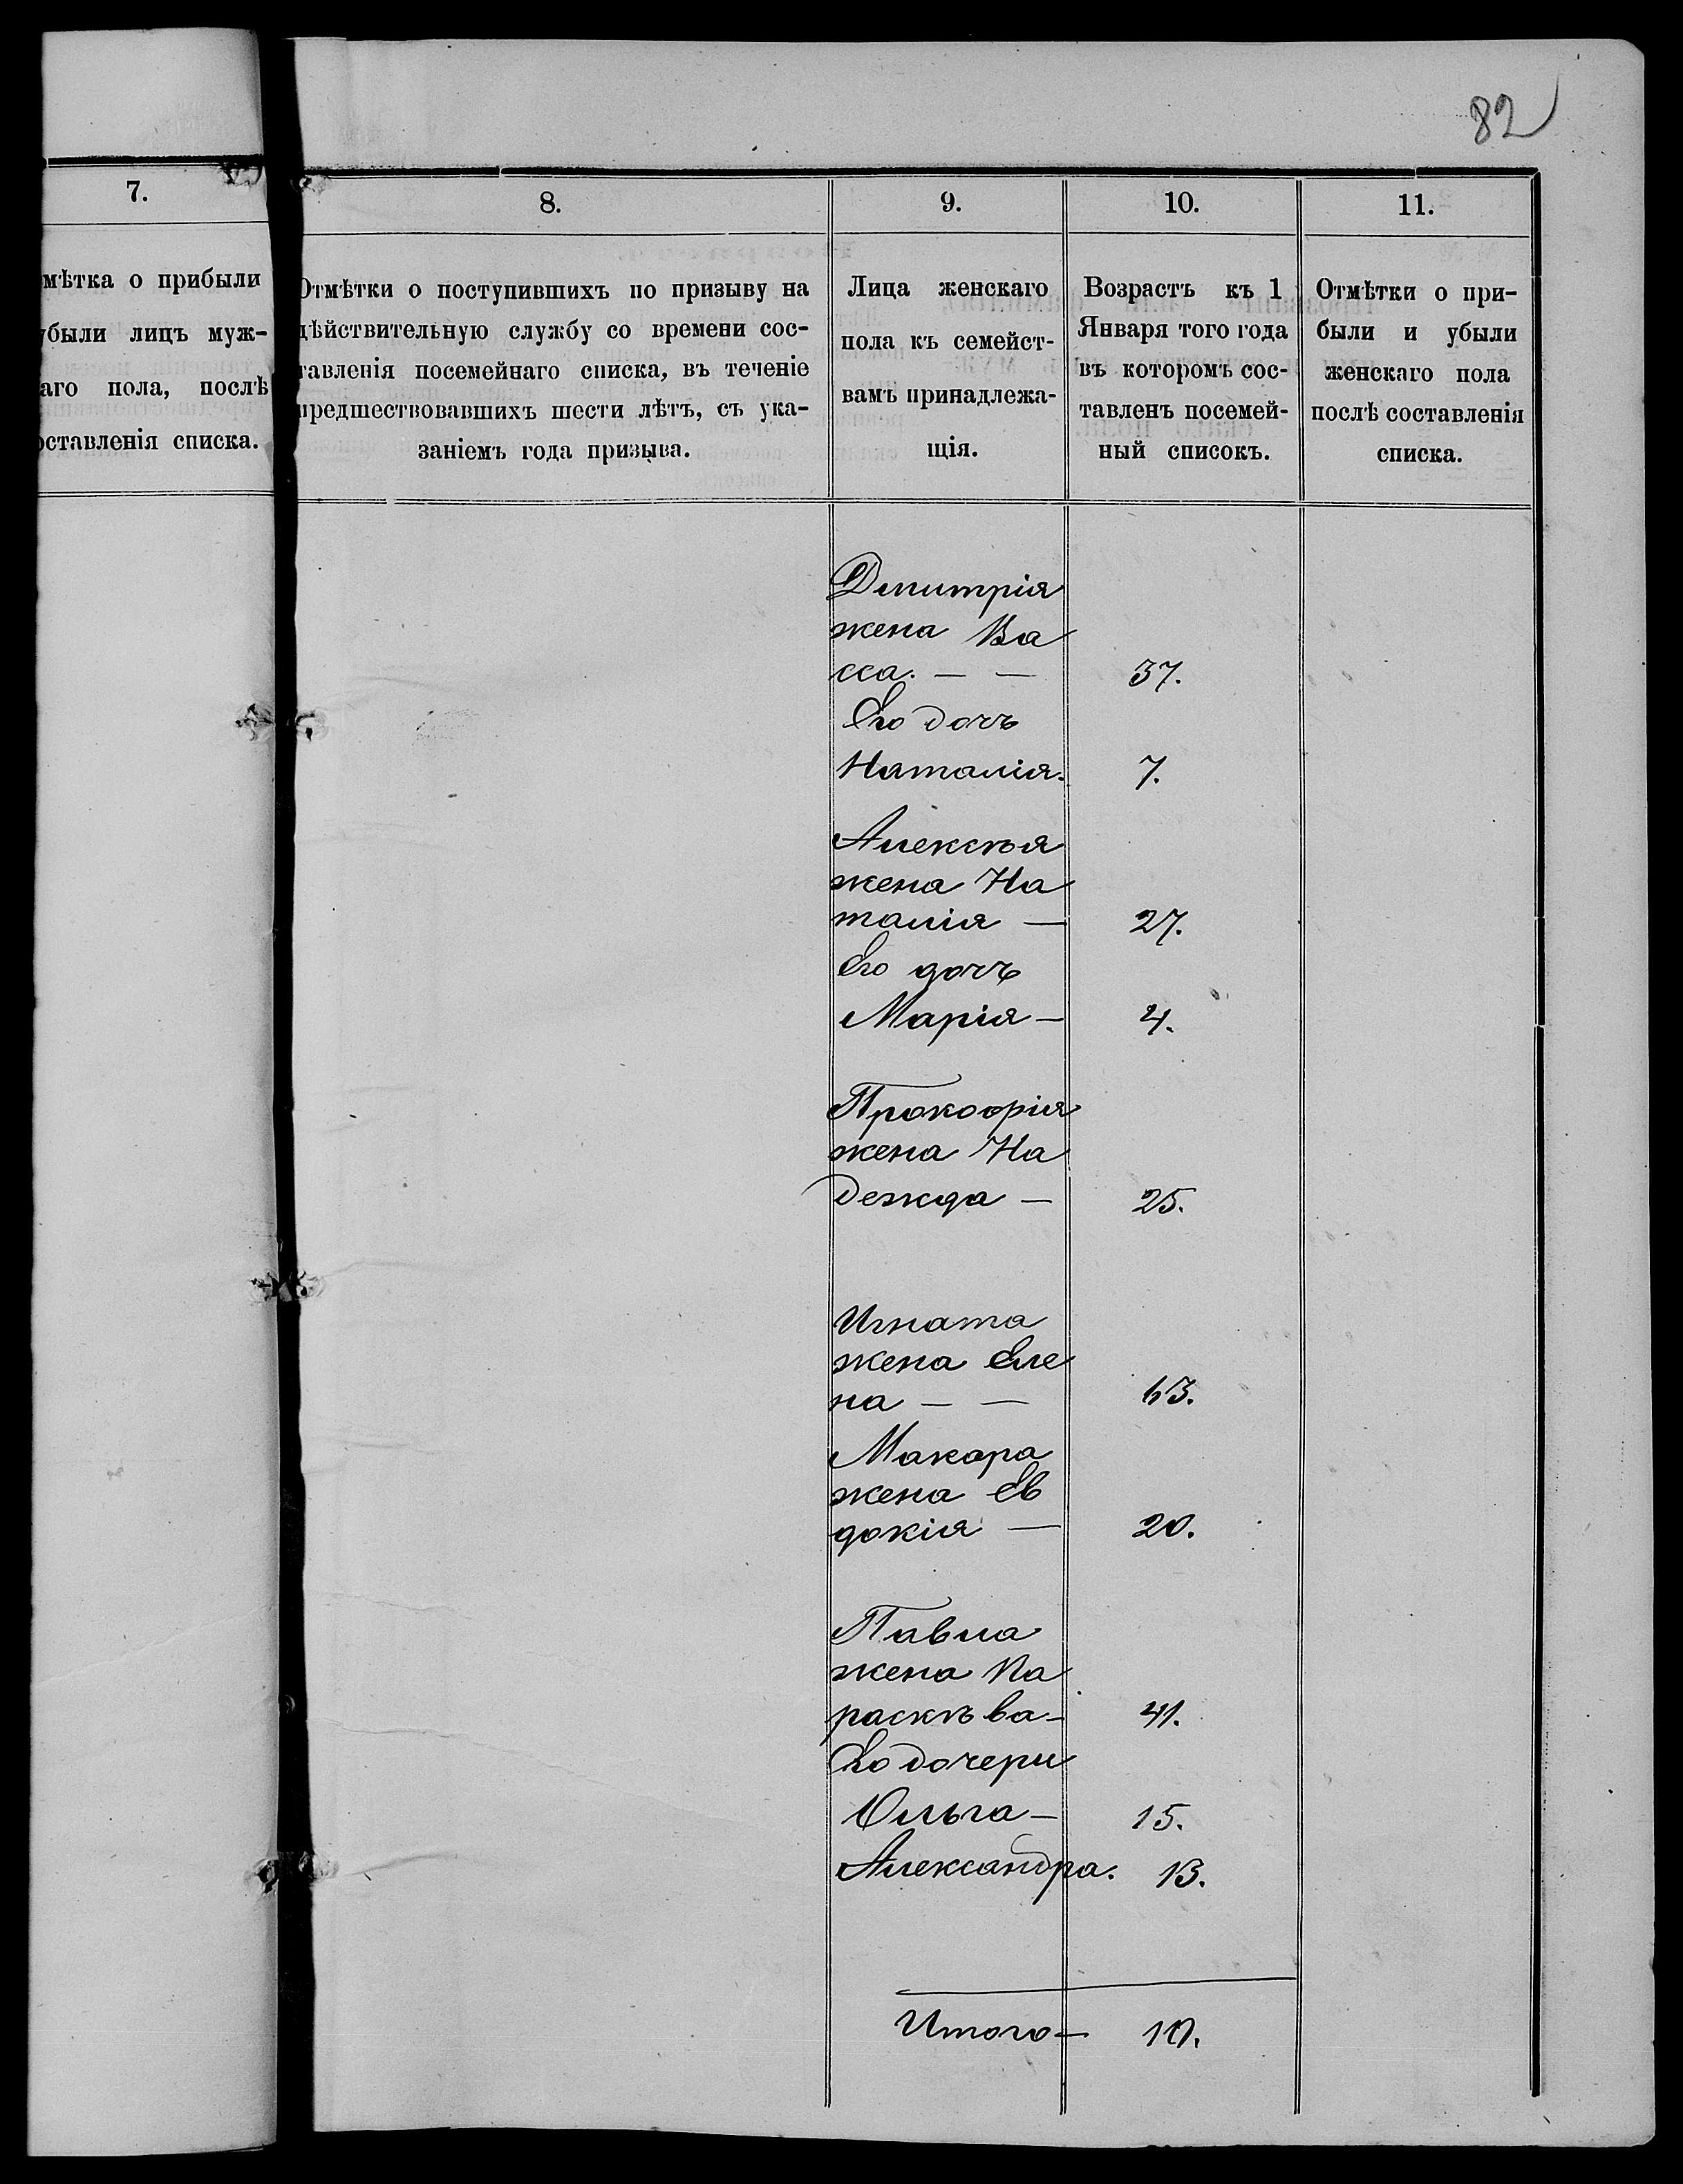 82
7.
мѣтка о прибыли
убыли лицъ муж-
аго пола, послѣ
оставленія списка.
8.
Отмѣтки о поступившихъ по призыву на
дѣйствительную службу со времени сос-
тавленія посемейнаго списка, въ теченіе
предшествовавшихъ шести лѣтъ, съ ука-
заніемъ года призыва.
9.
Лица женскаго
пола къ семейст-
вамъ принадлежа-
щія.
10.
Возрастъ къ 1
Января того года
въ которомъ сос-
тавленъ посемей-
ный списокъ.
11.
Отмѣтки о при-
были и убыли
женскаго пола
послѣ составленія
списка.
Димитрія
жена Ва
сса. — — 37.
Его дочь
Наталія. 7.
Алексѣя
жена На
талія — 27.
Его дочь
Марія — 4.
Прокофія
жена На
дежда — 25.
Игната
жена Еле
на — — 63.
Макара
жена Ев
докія — 20.
Павла
жена Па
раскѣва — 41.
Его дочери
Ольга — 15.
Александра. 13.
Итого — 10.